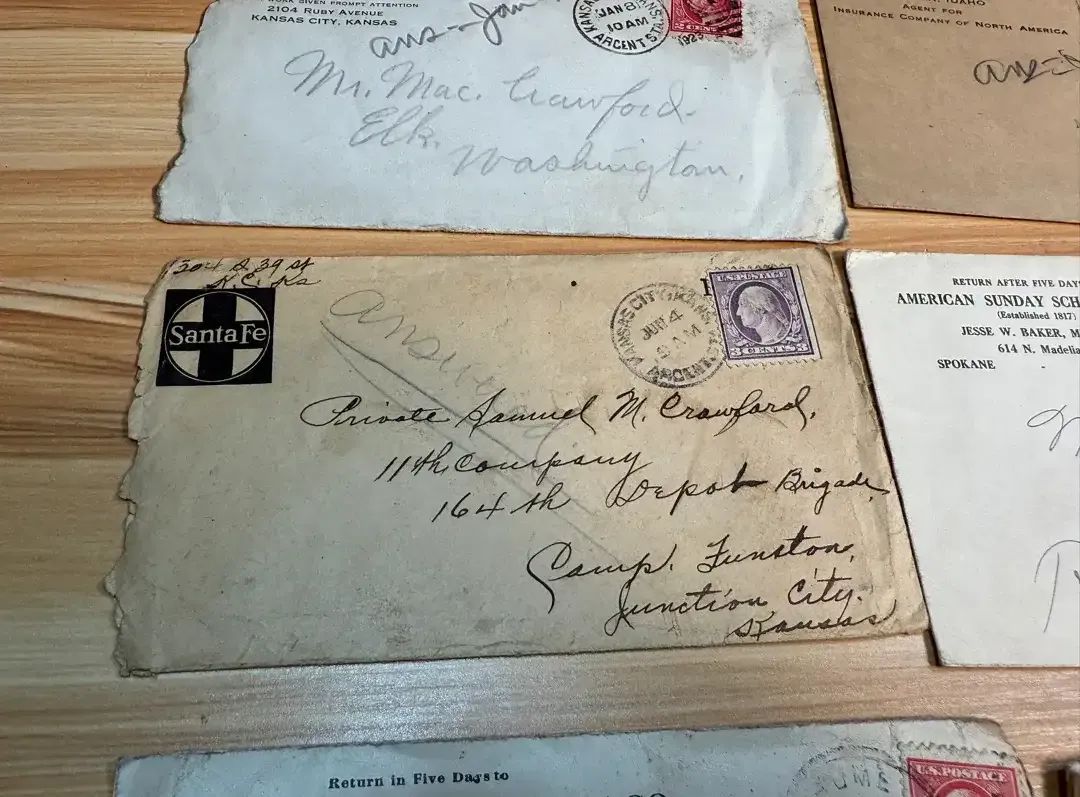 WORK GIVEN PROMPT ATTENTION
2104 RUBY AVENUE
KANSAS CITY, KANSAS
ans--Jan
JAN 8
10 AM
ARGENT. STA.
1925
Mr. Mac. Crawford.
Elk.
Washington.
IDAHO
AGENT FOR
INSURANCE COMPANY OF NORTH AMERICA
ans
304 S 39 st
K.C. Ks
Santa Fe
answered
KANSAS CITY, KANS.
JUN 4
9 AM
ARGENT.
U.S. POSTAGE
3 CENTS 3
Private Samuel M. Crawford,
11th Company
164th Depot Brigade,
Camp. Funston,
Junction, City.
Kansas
RETURN AFTER FIVE DAYS
AMERICAN SUNDAY SCH
(Established 1817)
JESSE W. BAKER, M
614 N. Madelia
SPOKANE
Return in Five Days to
U.S. POSTAGE